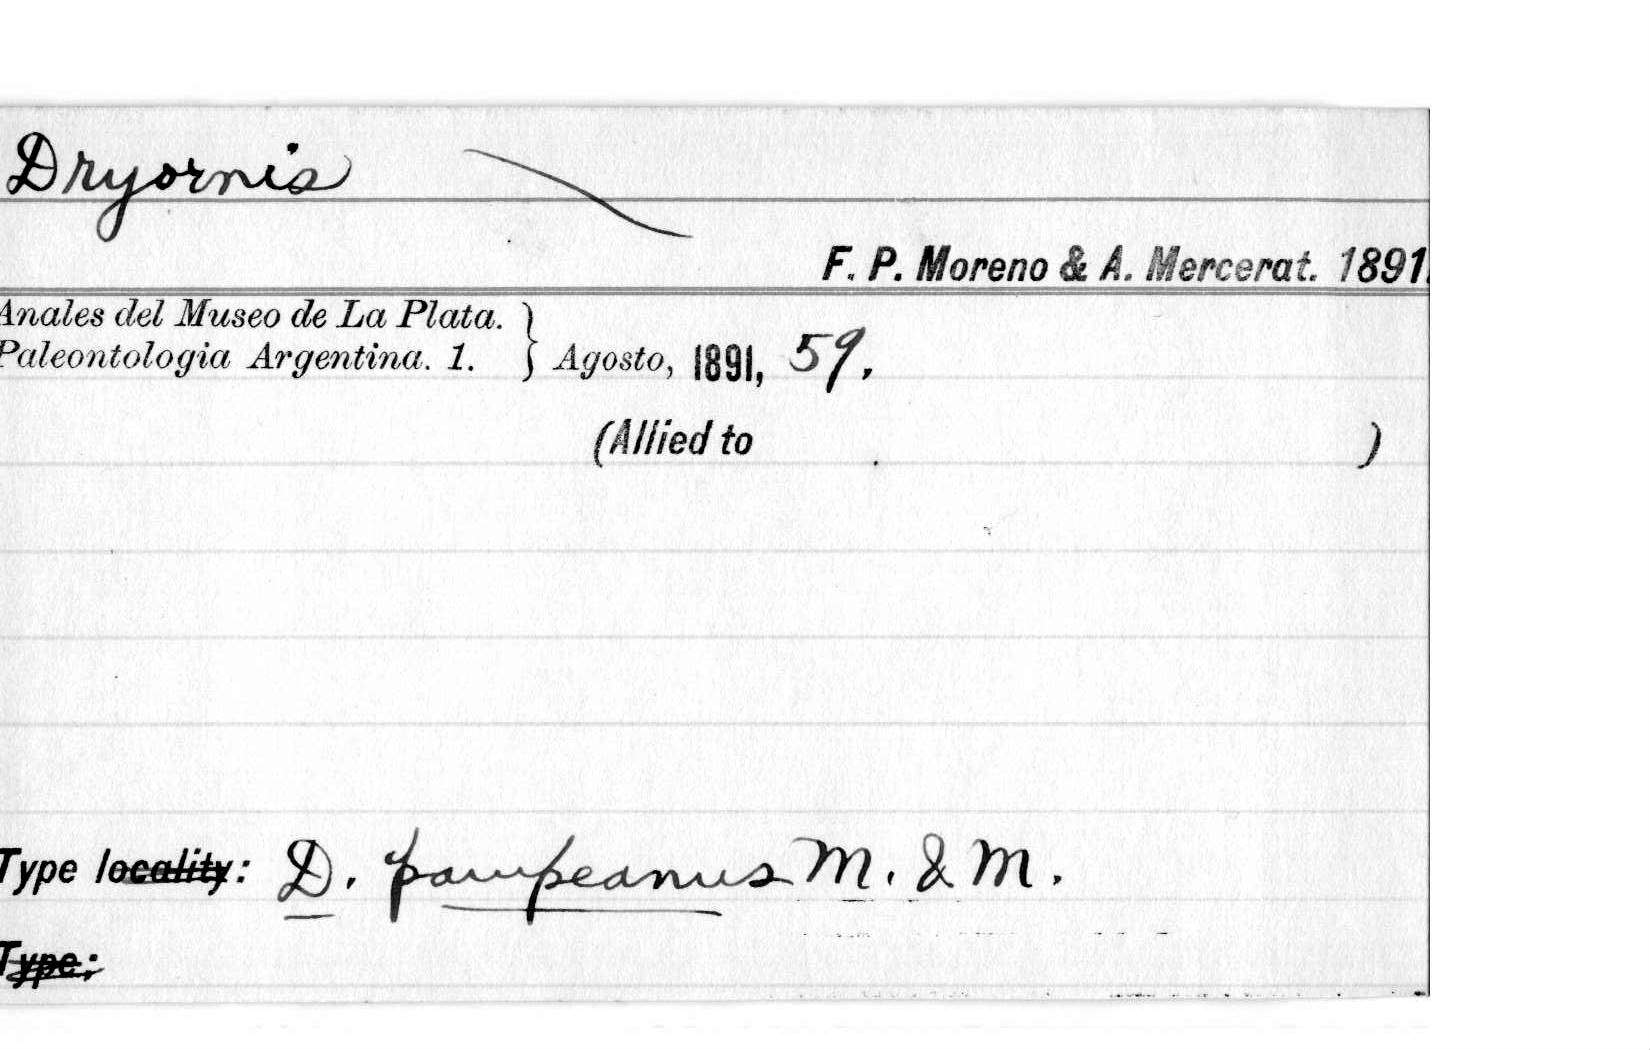 Dryornis
F. P. Moreno & A. Mercerat. 1891.
Anales del Museo de La Plata.
Paleontologia Argentina. 1. } Agosto, 1891, 59.
(Allied to )
Type locality: D. pampeanus M. & M.
Type: